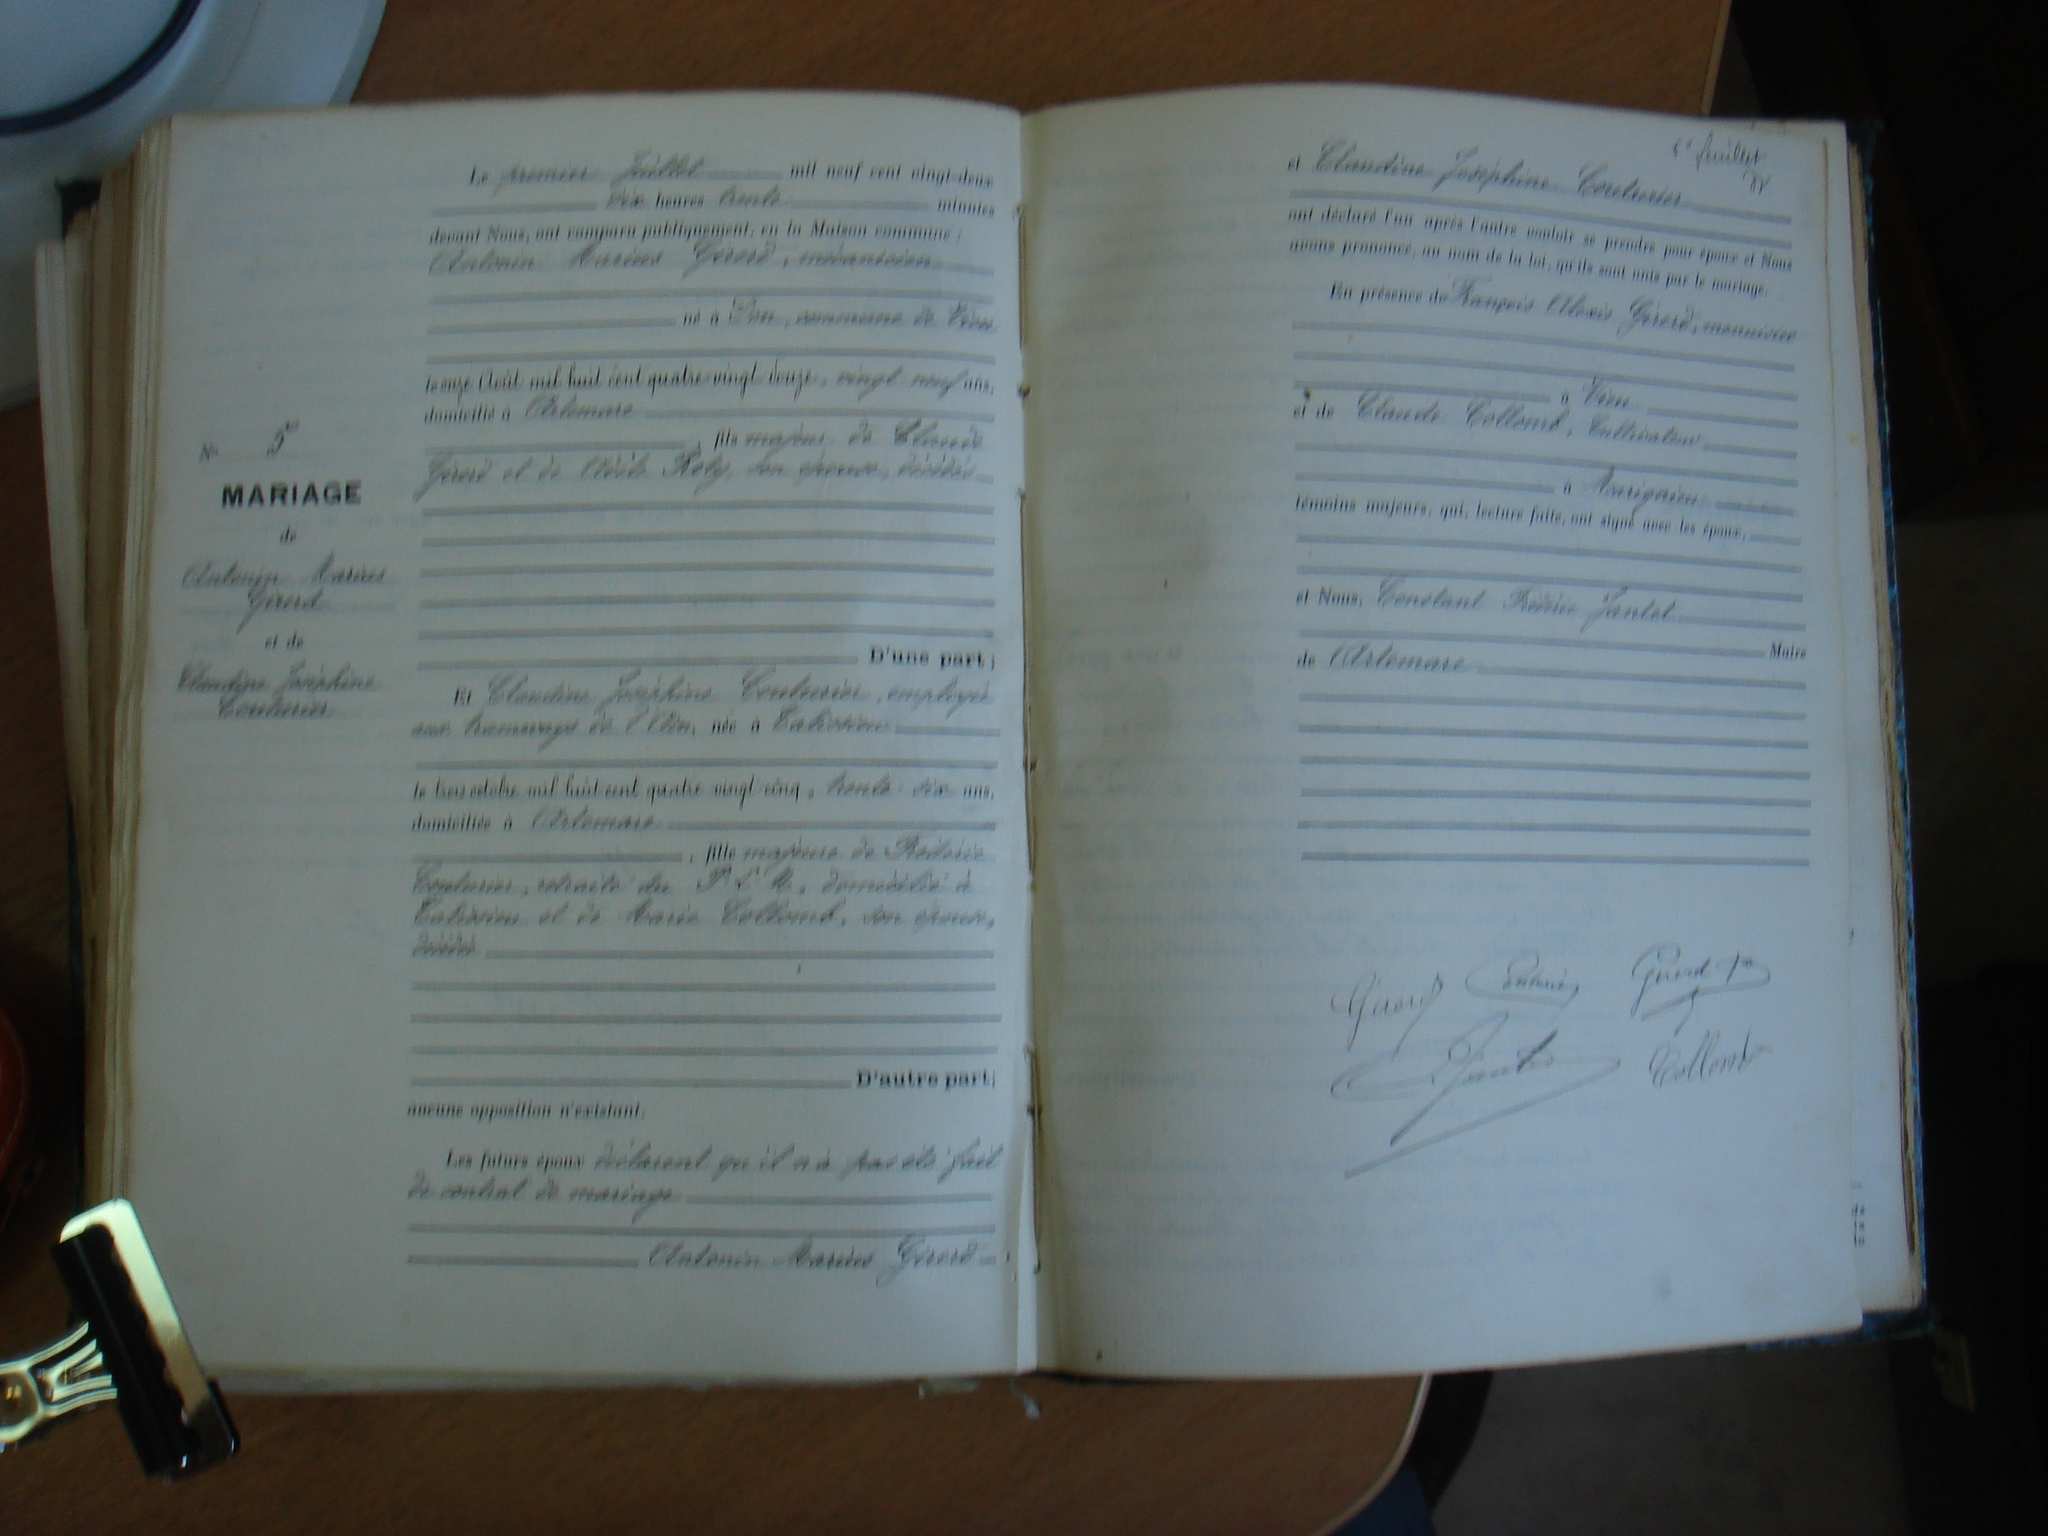 Le premier Juillet mil neuf cent vingt-deux
dix heures trente minutes
devant Nous, ont comparu publiquement, en la Maison commune :
Antonin Marius Girerd, mécanicien
né à Don, commune de Vieu
le onze Août mil huit cent quatre-vingt douze, vingt neuf ans,
domicilié à Artemare
, fils majeur de Claude
Girerd et de Roty, son épouse, décédés
N° 5
MARIAGE
de
Antonin Marius
Girerd
et de
Claudine Joséphine
Couturier
D'une part ;
Et Claudine Joséphine Couturier, employée
aux tramways de l'Ain, née à Talissieu
le trois octobre mil huit cent quatre vingt cinq, trente six ans,
domiciliée à Artemare
, fille majeure de
Couturier, retraité du P L M, domicilié à
Talissieu et de Marie Collomb, son épouse,
D'autre part ;
aucune opposition n'existant.
Les futurs époux déclarent qu'il n'a pas été fait
de contrat de mariage
Antonin Marius Girerd
feuillet
et Claudine Joséphine Couturier
ont déclaré l'un après l'autre vouloir se prendre pour époux et Nous
avons prononcé, au nom de la loi, qu'ils sont unis par le mariage.
En présence de François Alexis Girerd, menuisier
à Vieu
et de Claude Collomb, Cultivateur
à
témoins majeurs, qui, lecture faite, ont signé avec les époux,
et Nous, Constant Jantet
Maire
de Artemare
Girerd Couturier Girerd
Jantet Collomb